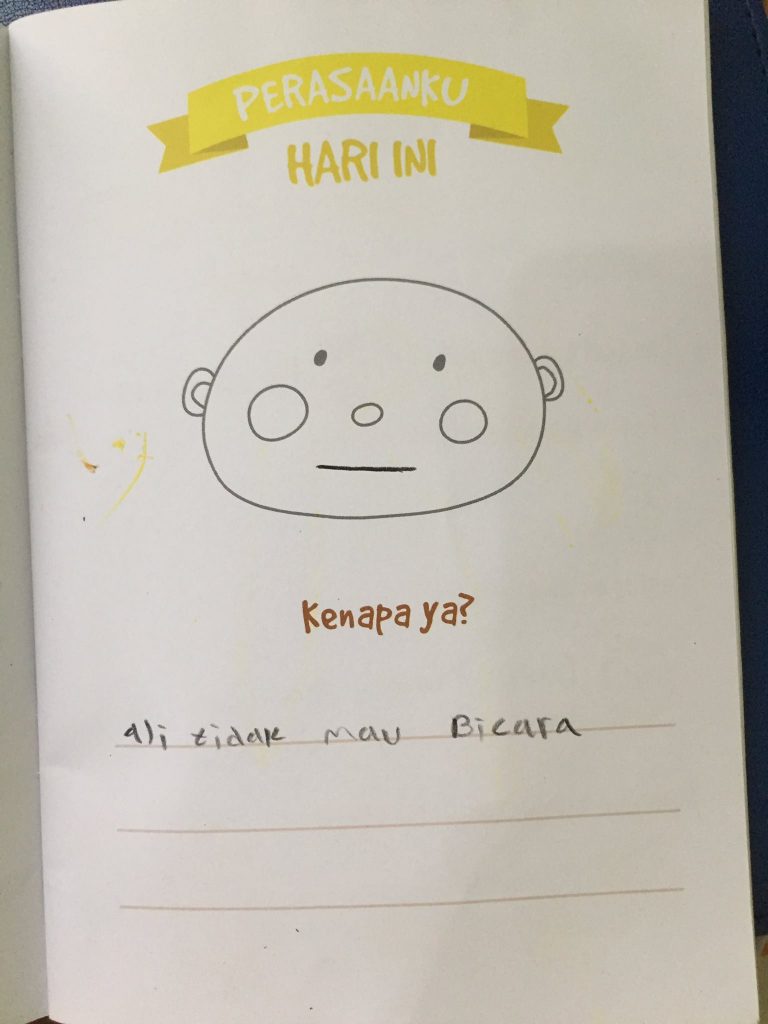 PERASAANKU
HARI INI
Kenapa ya?
Ali tidak mau Bicara